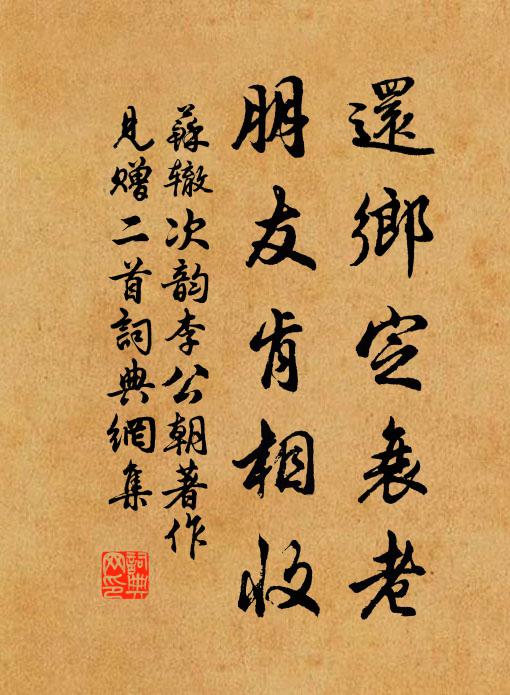 還鄉定衰老
朋友肯相收
蘇辙次韵李公朝著作
見赠二首詞典網集
詞典网印